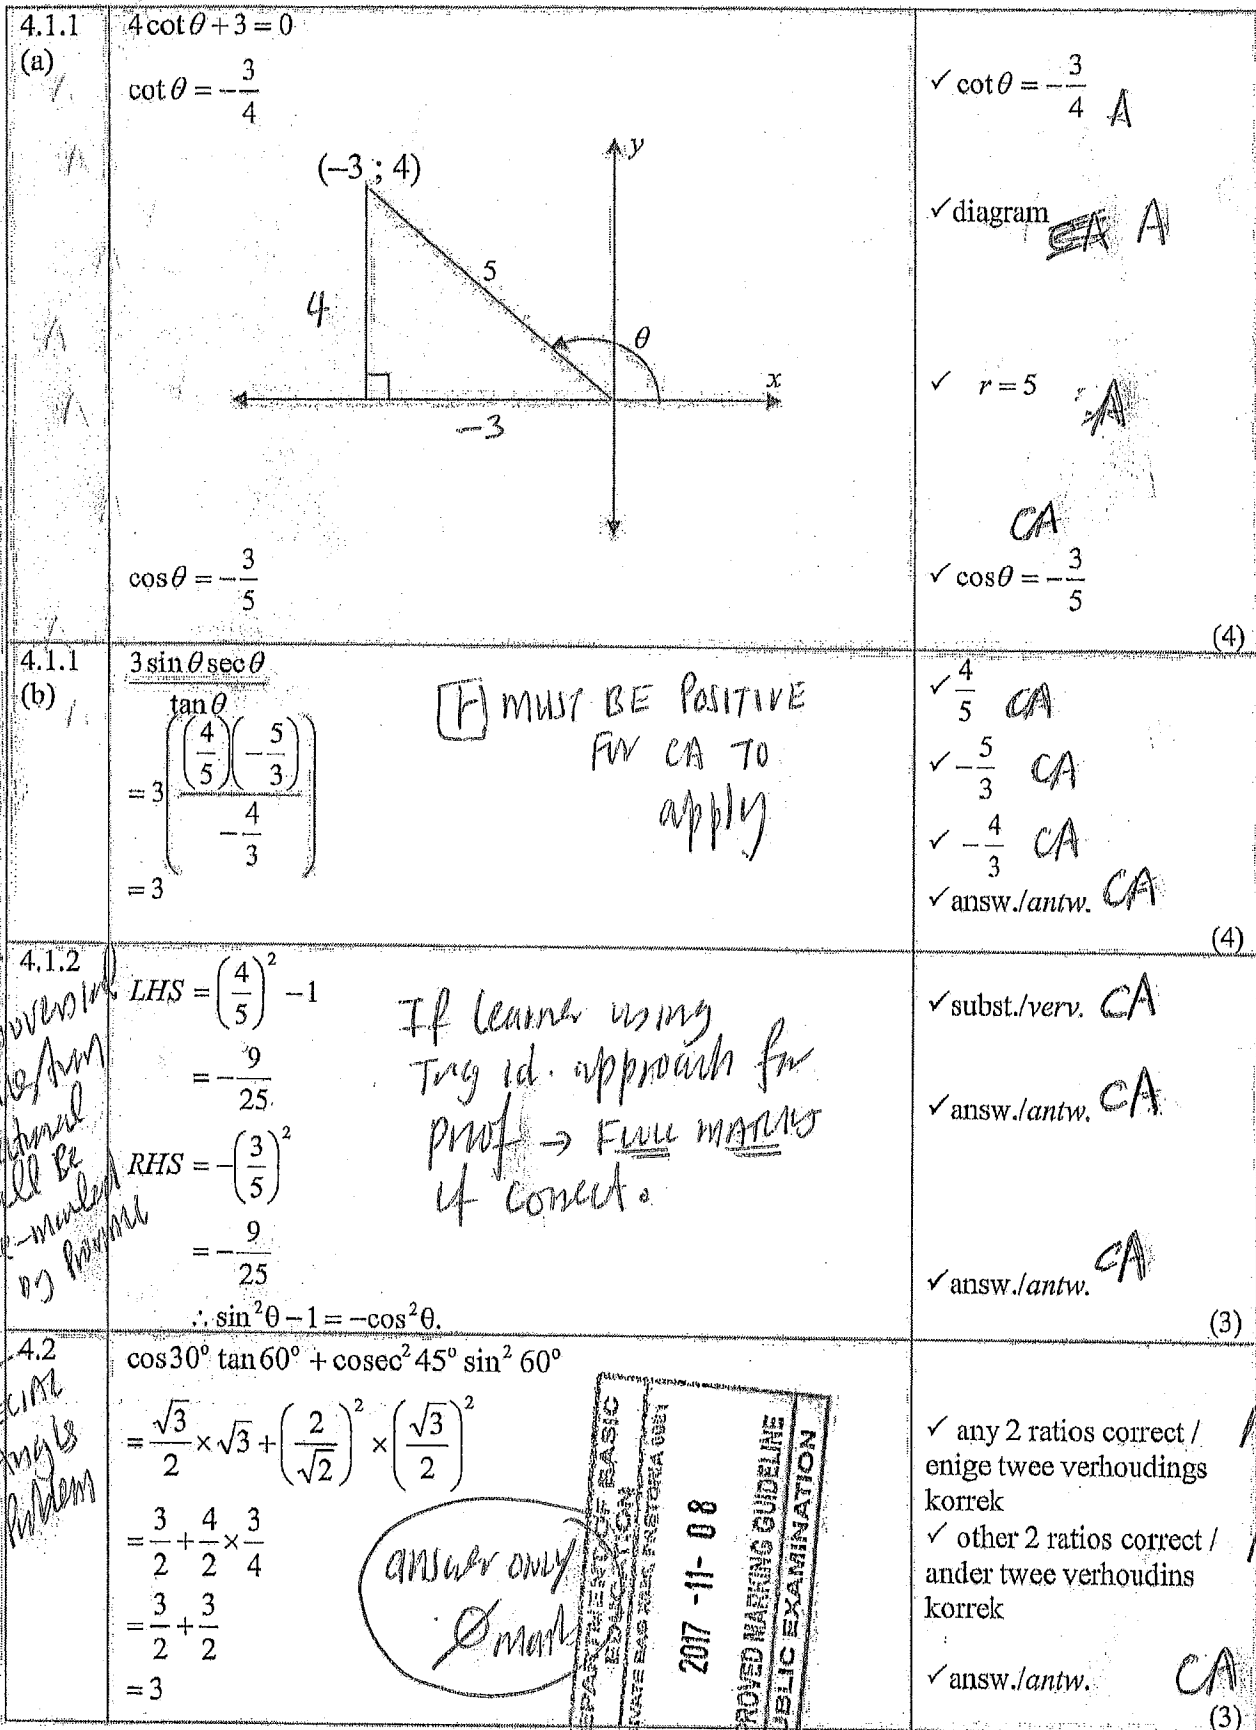 4.1.1
(a)
4 cot θ + 3 = 0
cot θ = -3/4
(-3 ; 4)
y
5
4
θ
x
-3
cos θ = -3/5
✓ cot θ = -3/4 A
✓ diagram CA A
✓ r = 5 A
CA
✓ cos θ = -3/5
(4)
4.1.1
(b)
3 sin θ sec θ / tan θ
= 3((4/5)(-5/3) / (-4/3))
= 3
MUST BE POSITIVE
FOR CA TO
apply
✓ 4/5 CA
✓ -5/3 CA
✓ -4/3 CA
✓ answ./antw. CA
(4)
4.1.2
LHS = (4/5)² - 1
= -9/25
RHS = -(3/5)²
= -9/25
∴ sin²θ - 1 = -cos²θ.
If learner using
Trig id. approach for
proof → FULL MARKS
if correct.
✓ subst./verv. CA
✓ answ./antw. CA
✓ answ./antw. CA
(3)
4.2
Angle
Problem
cos30° tan60° + cosec² 45° sin² 60°
= √3/2 × √3 + (2/√2)² × (√3/2)²
= 3/2 + 4/2 × 3/4
= 3/2 + 3/2
= 3
answer only
0 mark
EPARTMENT OF BASIC
EDUCATION
2017 -11- 08
PROVED MARKING GUIDELINE
UBLIC EXAMINATION
✓ any 2 ratios correct /
enige twee verhoudings
korrek
✓ other 2 ratios correct /
ander twee verhoudins
korrek
✓ answ./antw. CA
(3)